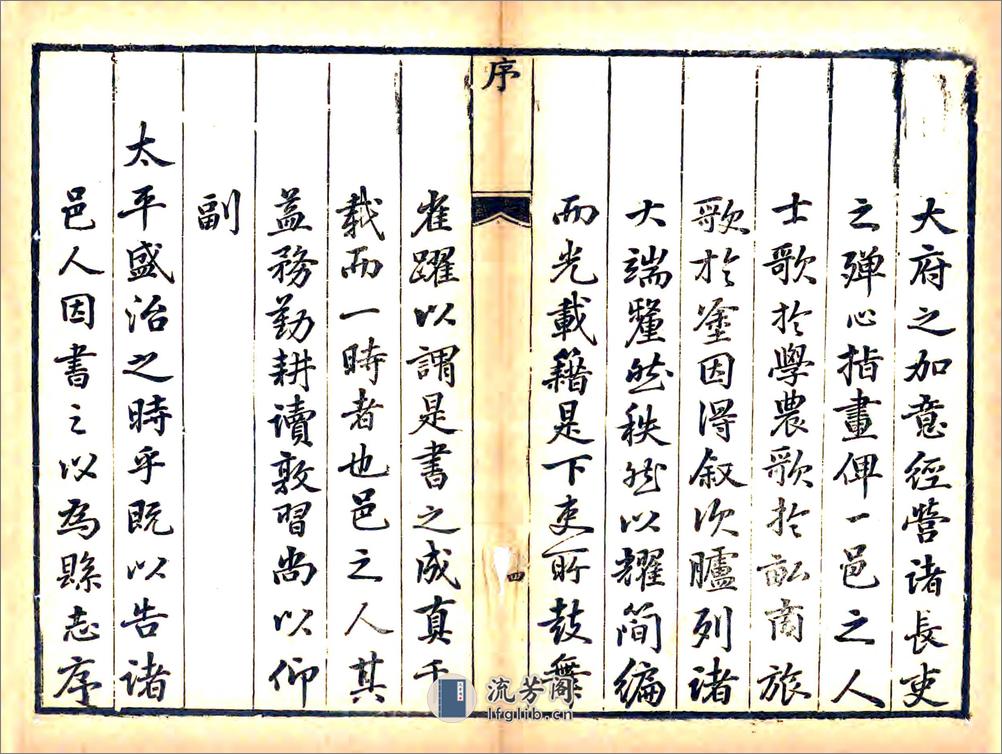 大府之加意經營諸長吏
之殫心指畫俾一邑之人
士歌於學農歌於畝商旅
歌於塗因得叙次臚列諸
大端釐然秩然以耀簡編
而光載籍是下吏所鼓舞
序
四
雀躍以謂是書之成真千
載而一時者也邑之人其
益務勤耕讀敦習尚以仰
副
太平盛治之時乎既以告諸
邑人因書之以為縣志序
流芳阁
lfglib.cn